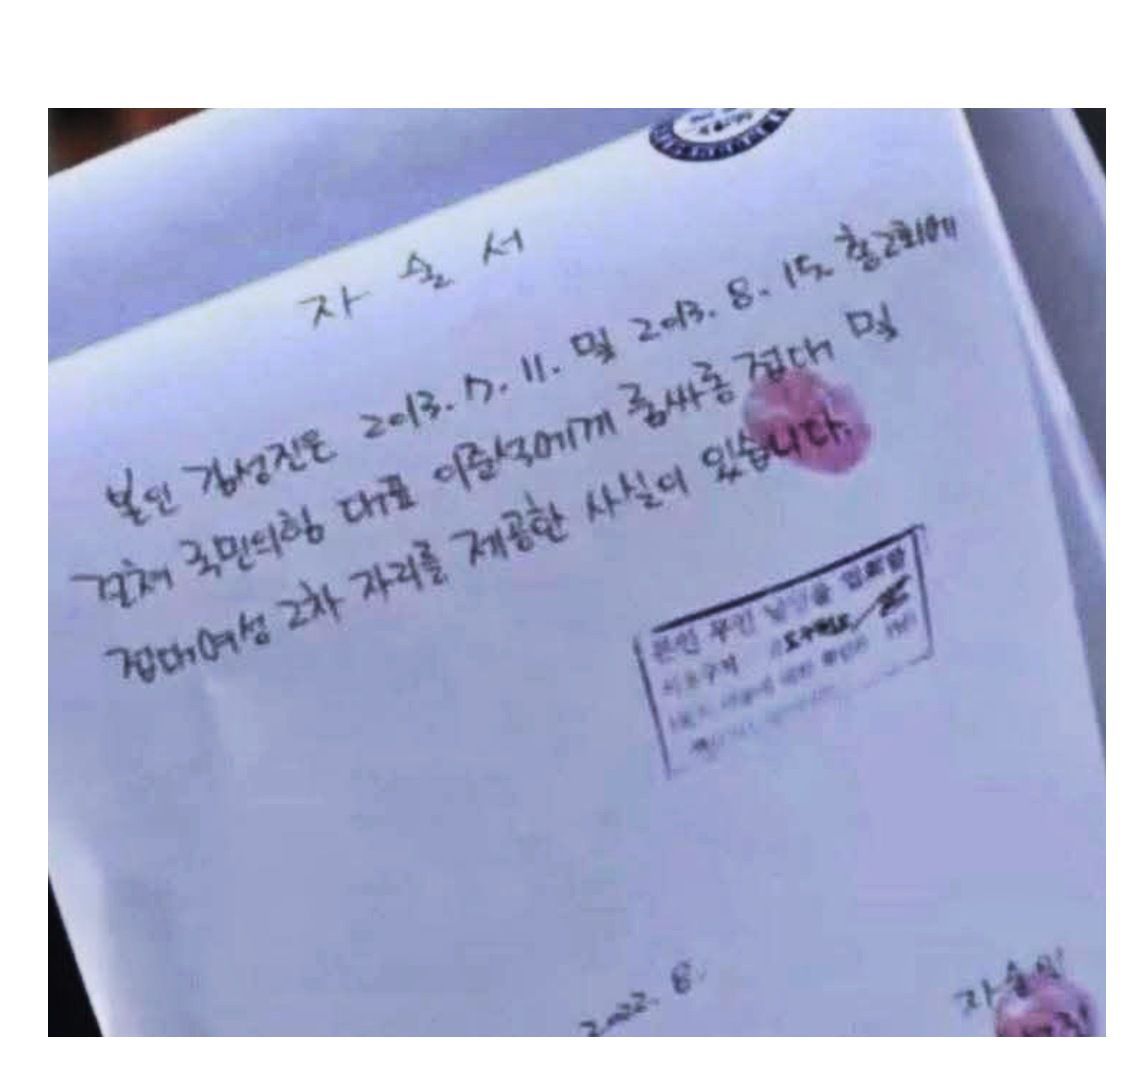 자 술 서
본인 김성진은 2013. 7. 11. 및 2013. 8. 15. 총2회에
걸쳐 국민의힘 대표 이준석에게 룸싸롱 접대 및
접대여성 2차 자리를 제공한 사실이 있습니다.
본인 무인 날인을 입회함
2022. 6.
자술인